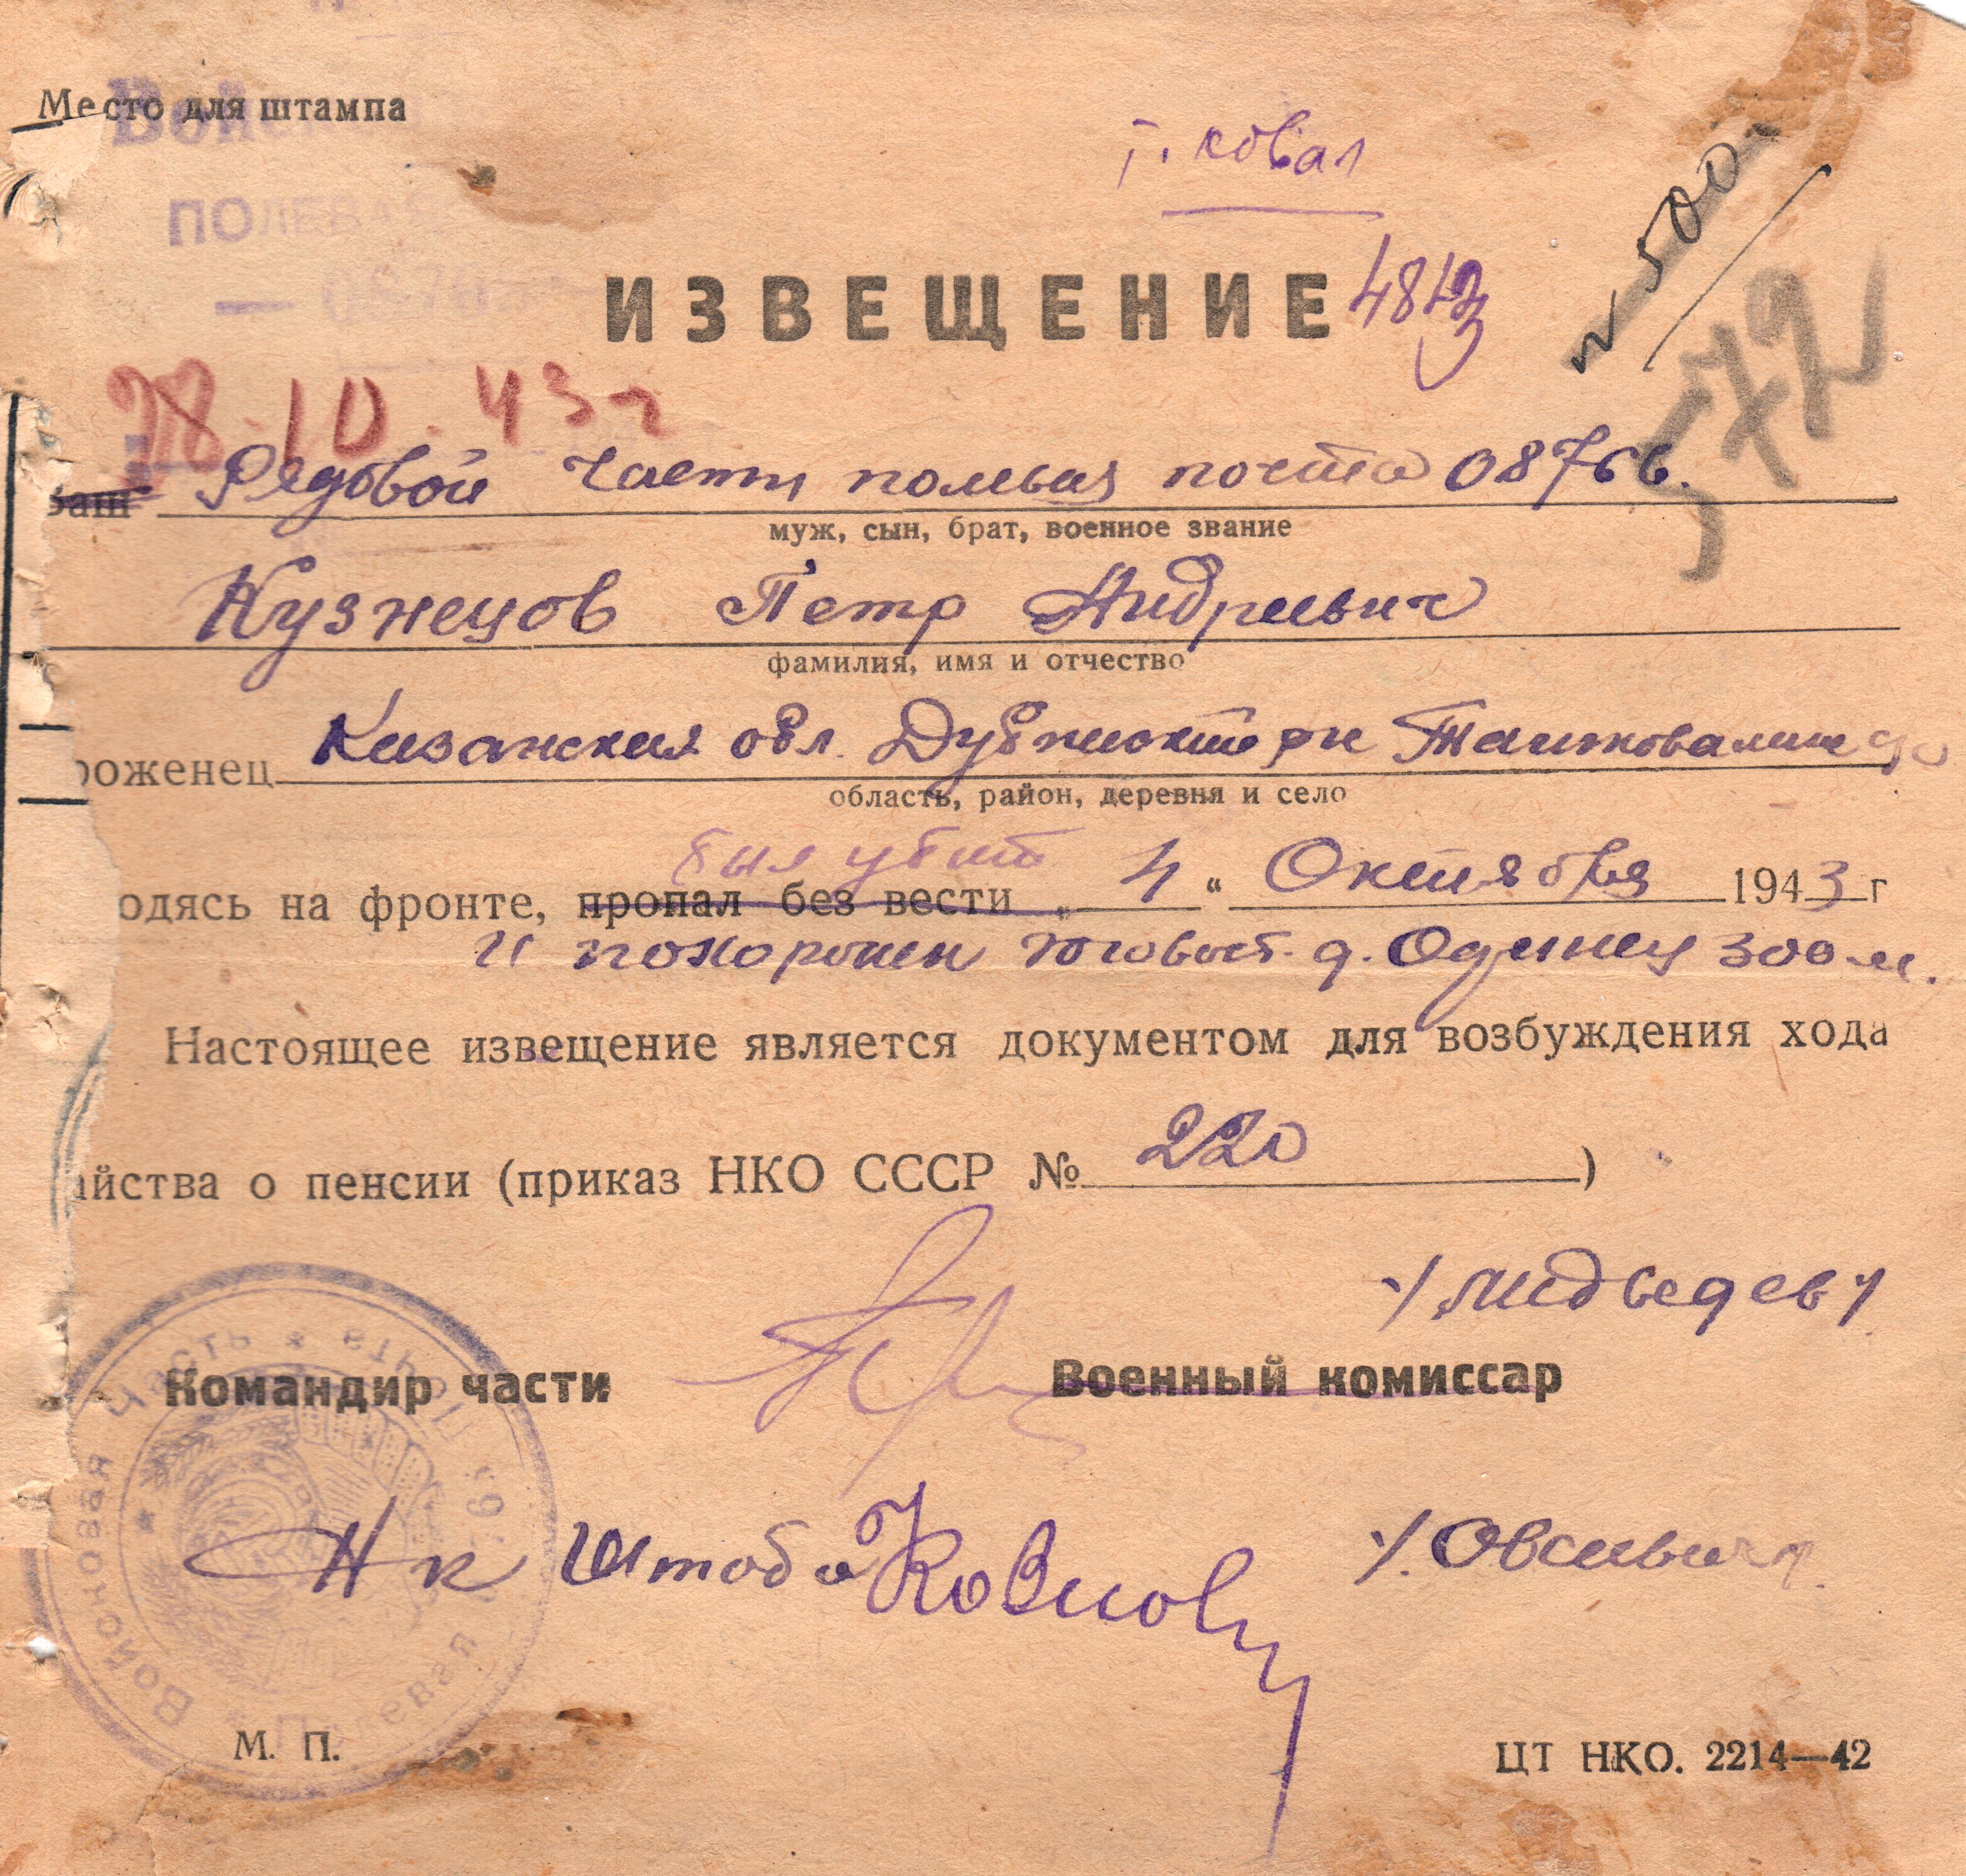 Место для штампа
ПОЛЕВАЯ
ИЗВЕЩЕНИЕ
500
572
28.10.43 г
Рядовой части полевая почта 08766.
муж, сын, брат, военное звание
Кузнецов Петр Андреевич
фамилия, имя и отчество
роженец Казанская обл.
область, район, деревня и село
был убит
одясь на фронте, пропал без вести „ 4 “ Октября 1943 г
и похоронен юговост. д. Одинец 300 м.
Настоящее извещение является документом для возбуждения хода
айства о пенсии (приказ НКО СССР № 220 )
Медведев
Командир части Военный комиссар
Нк Штаба
Войсковая Часть * Полевая почта
М. П.
ЦТ НКО. 2214—42